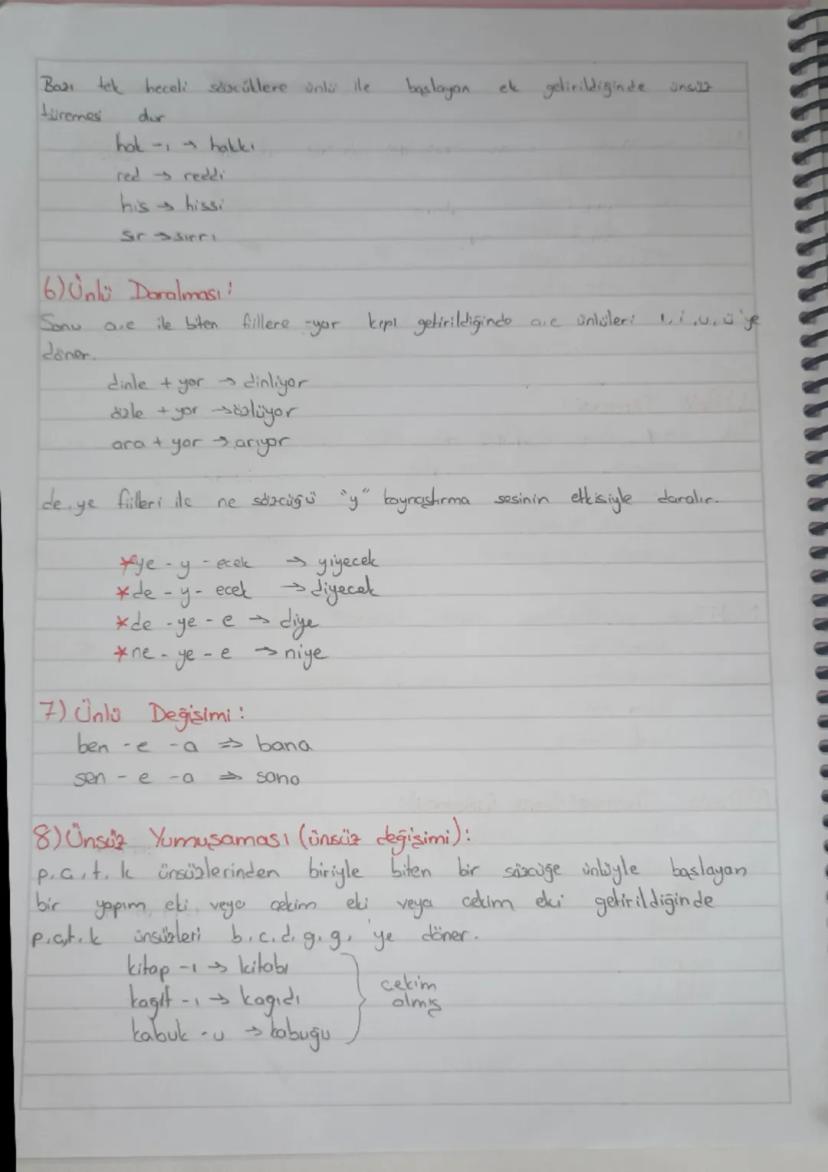 Bazı tek heceli sözcüklere ünlü ile başlayan ek getirildiğinde ünsüz
türemesi dur
hak -ı → hakkı
red → reddi
his → hissi
sır → sırrı
6) Ünlü Daralması:
Sonu a,e ile biten fiillere -yor kipi getirildiğinde a,e ünlüleri ı, i, u, ü'ye
döner.
dinle + yor → dinliyor
özle + yor → özlüyor
ara + yor → arıyor
de, ye fiilleri ile ne sözcüğü "y" kaynaştırma sesinin etkisiyle daralır.
*ye - y - ecek → yiyecek
*de - y - ecek → diyecek
*de - ye - e → diye
*ne - ye - e → niye
7) Ünlü Değişimi:
ben - e - a ⇒ bana
sen - e - a ⇒ sana
8) Ünsüz Yumuşaması (ünsüz değişimi):
p, ç, t, k ünsüzlerinden biriyle biten bir sözcüğe ünlüyle başlayan
bir yapım eki veya çekim eki veya çekim eki getirildiğinde
p,ç,t,k ünsüzleri b, c, d, g, ğ, 'ye döner.
kitap -ı → kitabı
kağıt -ı → kağıdı
kabuk - u → kabuğu
çekim
olmış